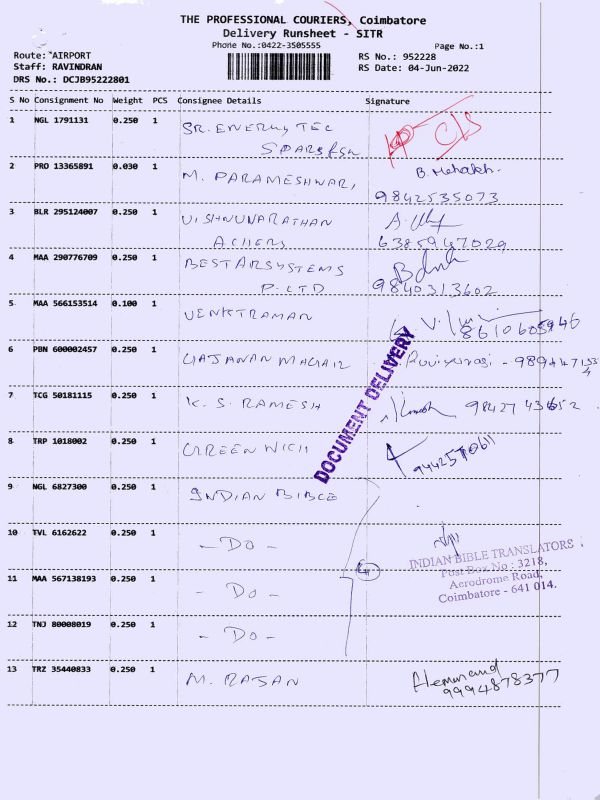 THE PROFESSIONAL COURIERS, Coimbatore
Delivery Runsheet - SITR
Phone No.:0422-3505555 Page No.:1
Route: AIRPORT RS No.: 952228
Staff: RAVINDRAN RS Date: 04-Jun-2022
DRS No.: DCJB95222801
S No Consignment No Weight PCS Consignee Details Signature
1 NGL 1791131 0.250 1 SR. ENERGY TEC
2 PRO 13365891 0.030 1 M. PARAMESHWAR,
9842535073
3 BLR 295124007 0.250 1 VISHNUNARATHAN
ACHERS 6385947029
4 MAA 290776709 0.250 1 BEST AR SYSTEMS
P. LTD 9840313602
5 MAA 566153514 0.100 1 VENKTRAMAN
8610605946
6 PBN 600002457 0.250 1
7 TCG 50181115 0.250 1 K. S. RAMESH 9842743652
8 TRP 1018002 0.250 1 GREEN WICH
DOCUMENT DELIVERY
9 NGL 6827300 0.250 1 INDIAN BIBLE
10 TVL 6162622 0.250 1 - Do -
INDIAN BIBLE TRANSLATORS
Post Box No : 3218,
Aerodrome Road,
Coimbatore - 641 014.
11 MAA 567138193 0.250 1 - Do -
12 TNJ 80008019 0.250 1 - Do -
13 TRZ 35440833 0.250 1 M. RAJAN Hemanand
9994878377